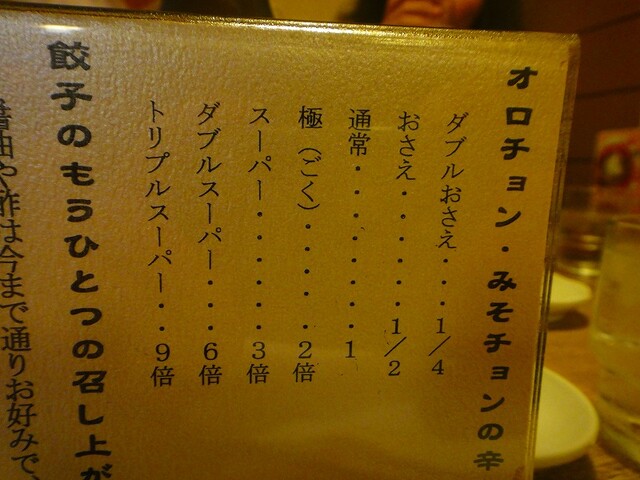 オロチョン・みそチョンの辛
ダブルおさえ・・・1/4
おさえ・・・・・1/2
通常・・・・・・・1
極（ごく）・・・・・2倍
スーパー・・・・・・3倍
ダブルスーパー・・・6倍
トリプルスーパー・・9倍
餃子のもうひとつの召し上が
醤油や酢は今まで通りお好みで、